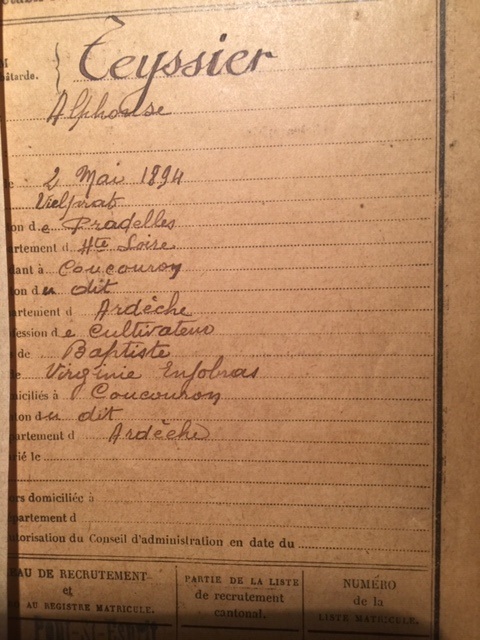 M
bâtarde. } Teyssier
Alphonse
e 2 Mai 1894
Vielprat
on de Pradelles
artement d Hte Loire
dant à Coucouron
on du dit
artement d Ardèche
fession de Cultivateur
de Baptiste
e Virginie Enjolras
iciliés à Coucouron
on du dit
artement d Ardèche
ié le
rs domiciliée à
épartement d
utorisation du Conseil d'administration en date du
EAU DE RECRUTEMENT
et
AU REGISTRE MATRICULE.
PARTIE DE LA LISTE
de recrutement
cantonal.
NUMÉRO
de la
LISTE MATRICULE.